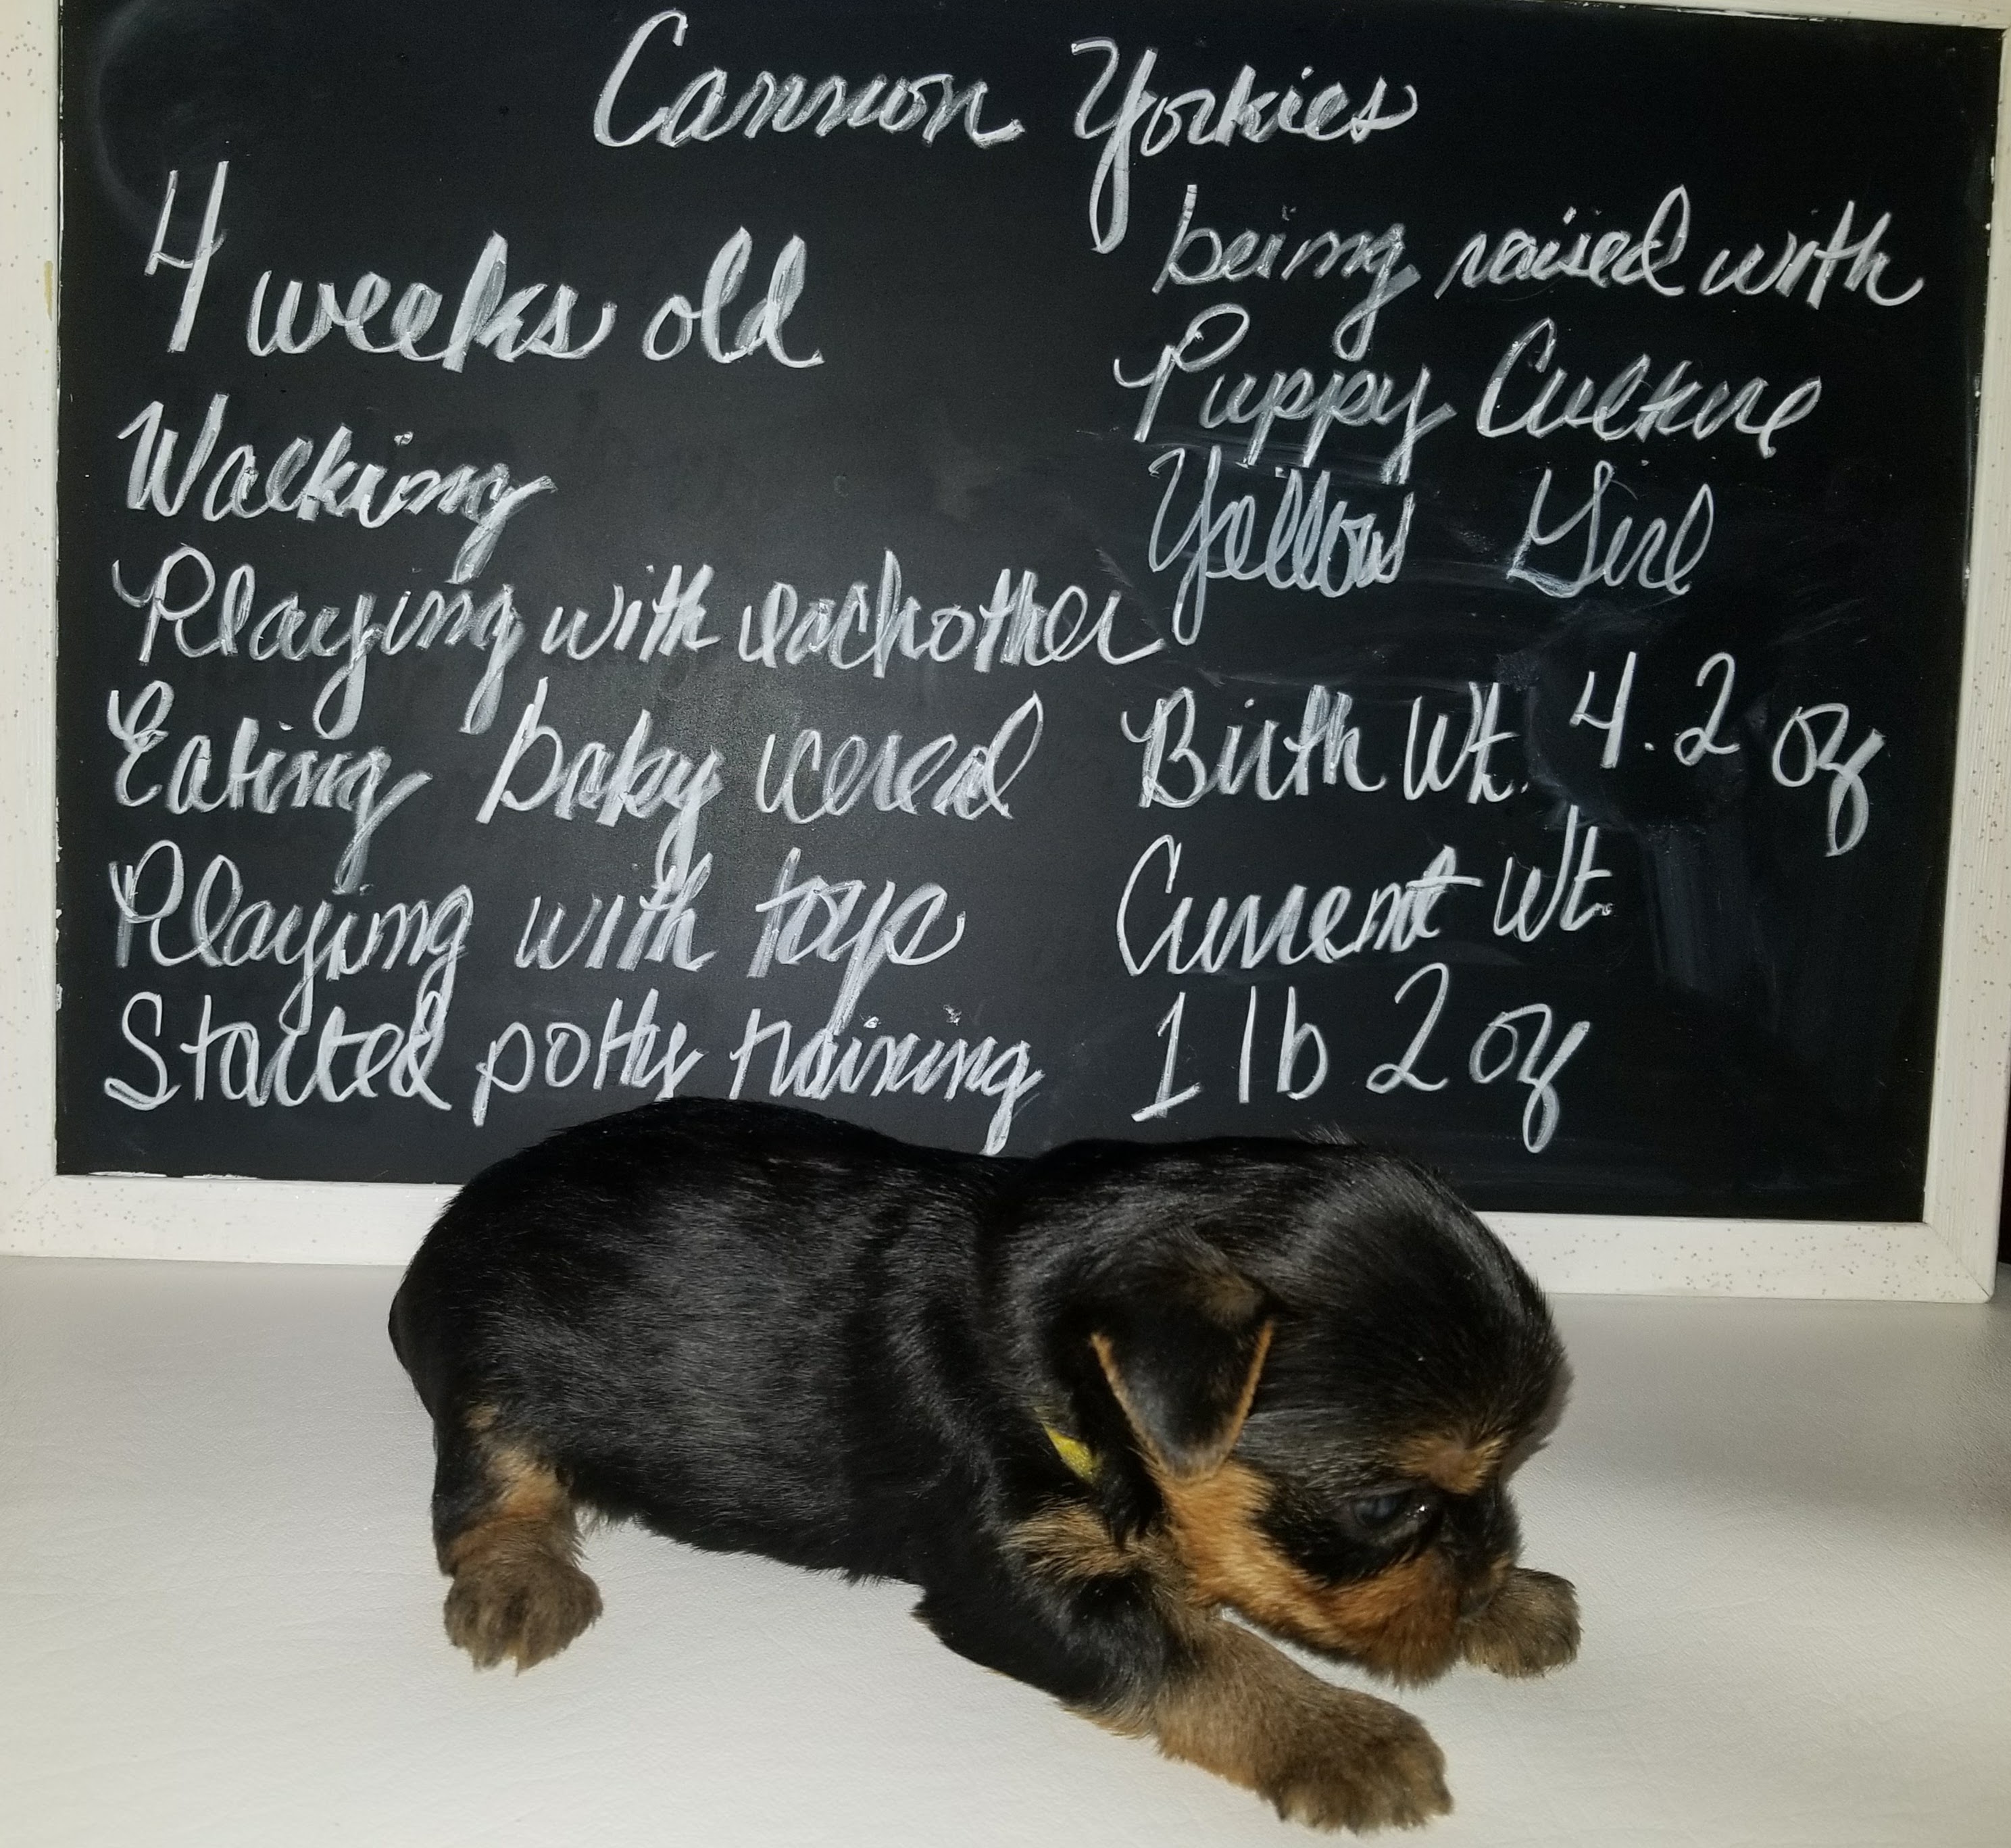 Cannon Yorkies
4 weeks old
Walking
Playing with eachother
Eating baby cereal
Playing with toys
Started potty training
being raised with
Puppy Culture
Yellow Girl
Birth Wt. 4.2 oz
Current Wt.
1 lb 2 oz